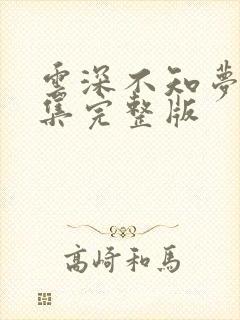 雲深不知夢
集完整版
高崎和馬